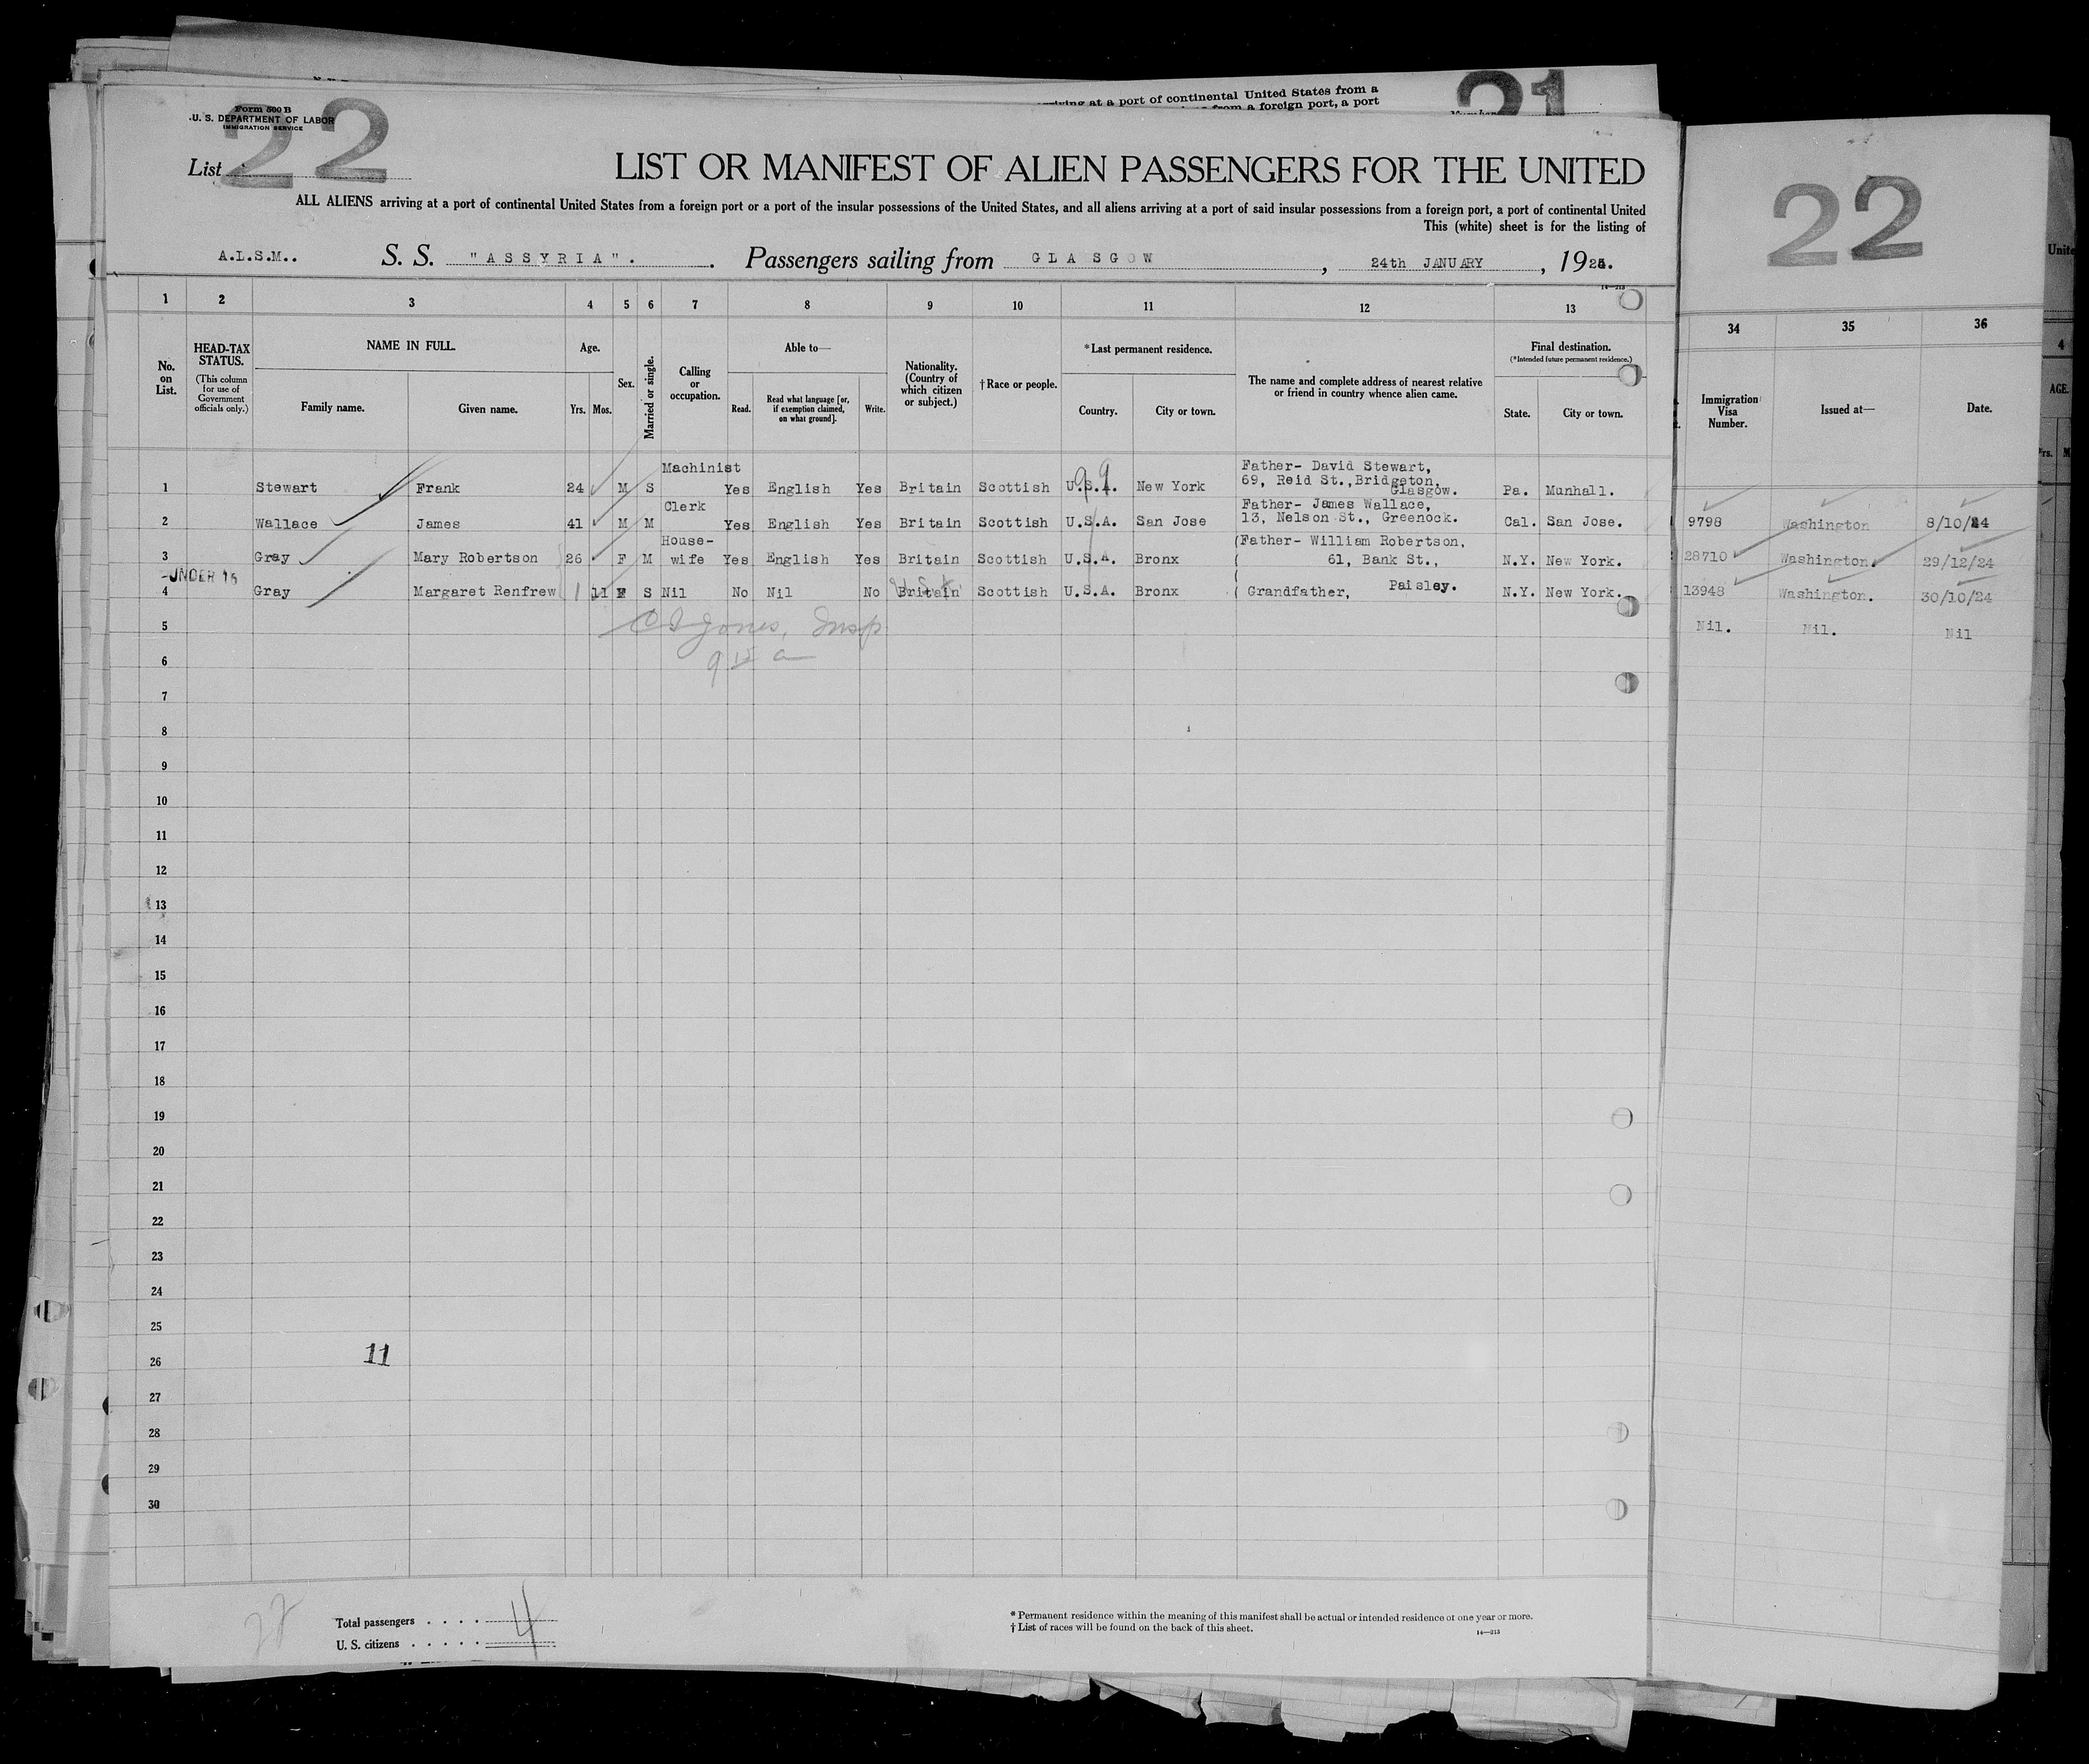 21
arriving at a port of continental United States from a
from a foreign port, a port
Form 500 B
U. S. DEPARTMENT OF LABOR
IMMIGRATION SERVICE
List 22
LIST OR MANIFEST OF ALIEN PASSENGERS FOR THE UNITED
ALL ALIENS arriving at a port of continental United States from a foreign port or a port of the insular possessions of the United States, and all aliens arriving at a port of said insular possessions from a foreign port, a port of continental United
This (white) sheet is for the listing of
A.L.S.M.. S. S. "ASSYRIA". Passengers sailing from GLASGOW, 24th JANUARY, 1925.
1 2 3 4 5 6 7 8 9 10 11 12 13
No. on List.
HEAD-TAX STATUS.
(This column for use of Government officials only.)
NAME IN FULL.
Family name. Given name.
Age.
Yrs. Mos.
Sex.
Married or single.
Calling or occupation.
Able to—
Read. Read what language [or, if exemption claimed, on what ground]. Write.
Nationality. (Country of which citizen or subject.)
†Race or people.
*Last permanent residence.
Country. City or town.
The name and complete address of nearest relative or friend in country whence alien came.
Final destination.
(*Intended future permanent residence.)
State. City or town.
1 Stewart Frank 24 M S Machinist Yes English Yes Britain Scottish U.S.A. New York Father- David Stewart, 69, Reid St., Bridgeton, Glasgow. Pa. Munhall.
2 Wallace James 41 M M Clerk Yes English Yes Britain Scottish U.S.A. San Jose Father- James Wallace, 13, Nelson St., Greenock. Cal. San Jose.
3 Gray Mary Robertson 26 F M House-wife Yes English Yes Britain Scottish U.S.A. Bronx (Father- William Robertson, 61, Bank St., N.Y. New York.
UNDER 16
4 Gray Margaret Renfrew 1 11 F S Nil No Nil No Britain Scottish U.S.A. Bronx ( Grandfather, Paisley. N.Y. New York.
5
C I Jones, Insp
6
9 15 a
7
8
9
10
11
12
13
14
15
16
17
18
19
20
21
22
23
24
25
26 11
27
28
29
30
22
Total passengers . . . . 4
U. S. citizens . . . . .
* Permanent residence within the meaning of this manifest shall be actual or intended residence of one year or more.
† List of races will be found on the back of this sheet.
14—213
22
34 35 36
Immigration Visa Number. Issued at— Date.
9798 Washington 8/10/24
28710 Washington. 29/12/24
13948 Washington. 30/10/24
Nil. Nil. Nil
4
AGE.